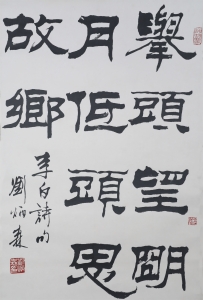 舉頭望明
月低頭思
故鄉
李白詩句
劉炳森